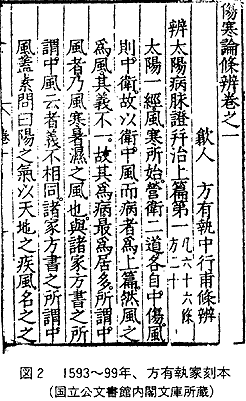 傷寒論條辨卷之一
歙人 方有執中行甫條辨
辨太陽病脉證幷治上篇第一 凡六十六條 方二十
太陽一經風寒所始營衛二道各自中傷風
則中衛故以衛中風而病者爲上篇然風之
爲風其義不一故其爲病最爲居多所謂中
風者乃風寒暑濕之風也與諸家方書之所
謂中風云者義不相同諸家方書之所謂中
風蓋素問曰陽之氣以天地之疾風名之之
図2 1593〜99年、方有執家刻本
(国立公文書館内閣文庫所蔵)